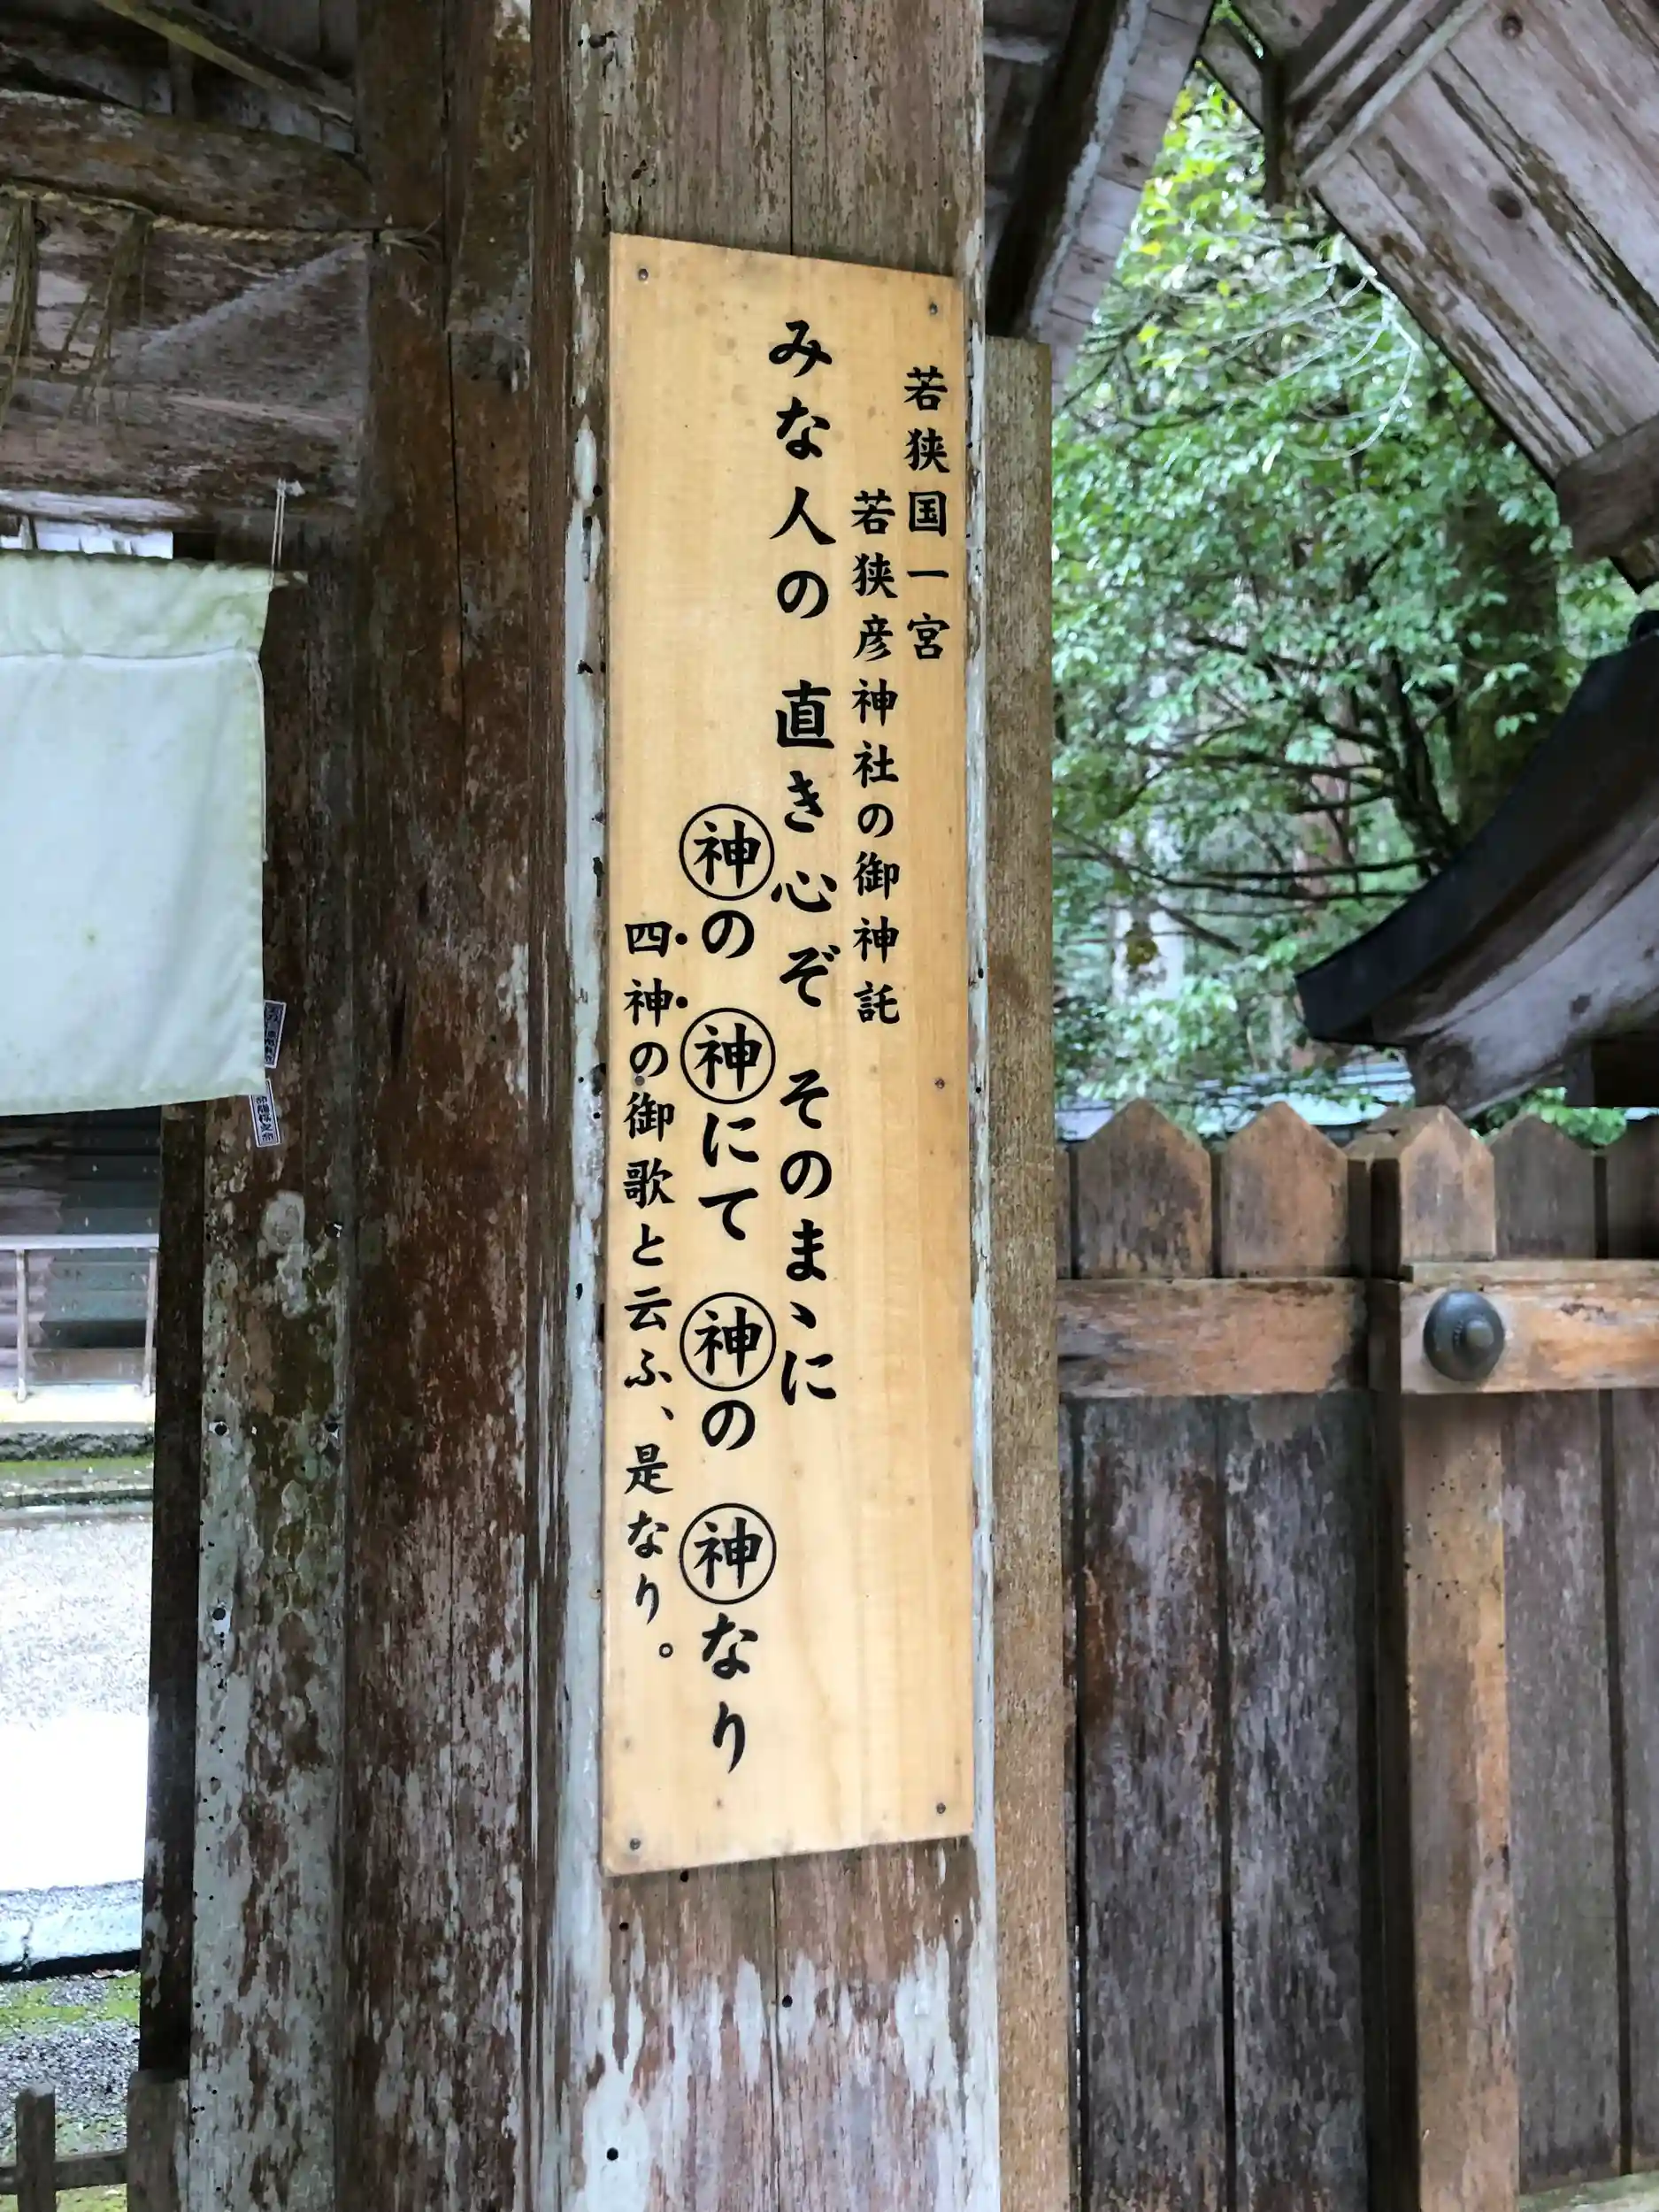 若狭国一宮
若狭彦神社の御神託
みな人の　直き心ぞ　そのまゝに
神の　神にて　神の　神なり
四神の御歌と云ふ、是なり。